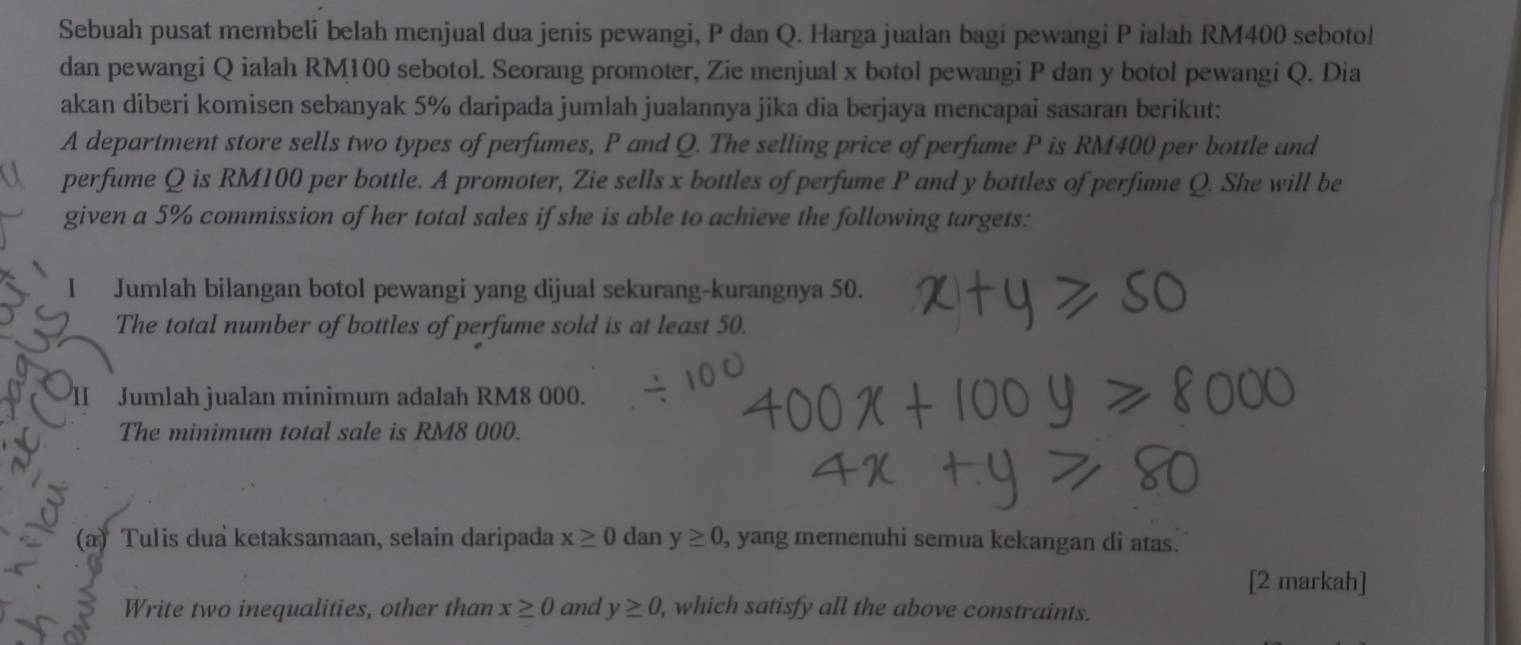 Sebuah pusat membeli belah menjual dua jenis pewangi, P dan Q. Harga jualan bagi pewangi P ialah RM400 sebotol
dan pewangi Q ialah RM100 sebotol. Seorang promoter, Zie menjual x botol pewangi P dan y botol pewangi Q. Dia
akan diberi komisen sebanyak 5% daripada jumlah jualannya jika dia berjaya mencapai sasaran berikut:
A department store sells two types of perfumes, P and Q. The selling price of perfume P is RM400 per bottle and
perfume Q is RM100 per bottle. A promoter, Zie sells x bottles of perfume P and y bottles of perfume Q. She will be
given a 5% commission of her total sales if she is able to achieve the following targets:
I Jumlah bilangan botol pewangi yang dijual sekurang-kurangnya 50. x + y ⩾ 50
The total number of bottles of perfume sold is at least 50.
II Jumlah jualan minimum adalah RM8 000. ÷ 100 400x + 100y ⩾ 8000
The minimum total sale is RM8 000.
4x + y ⩾ 80
(a) Tulis dua ketaksamaan, selain daripada x ≥ 0 dan y ≥ 0, yang memenuhi semua kekangan di atas.
[2 markah]
Write two inequalities, other than x ≥ 0 and y ≥ 0, which satisfy all the above constraints.